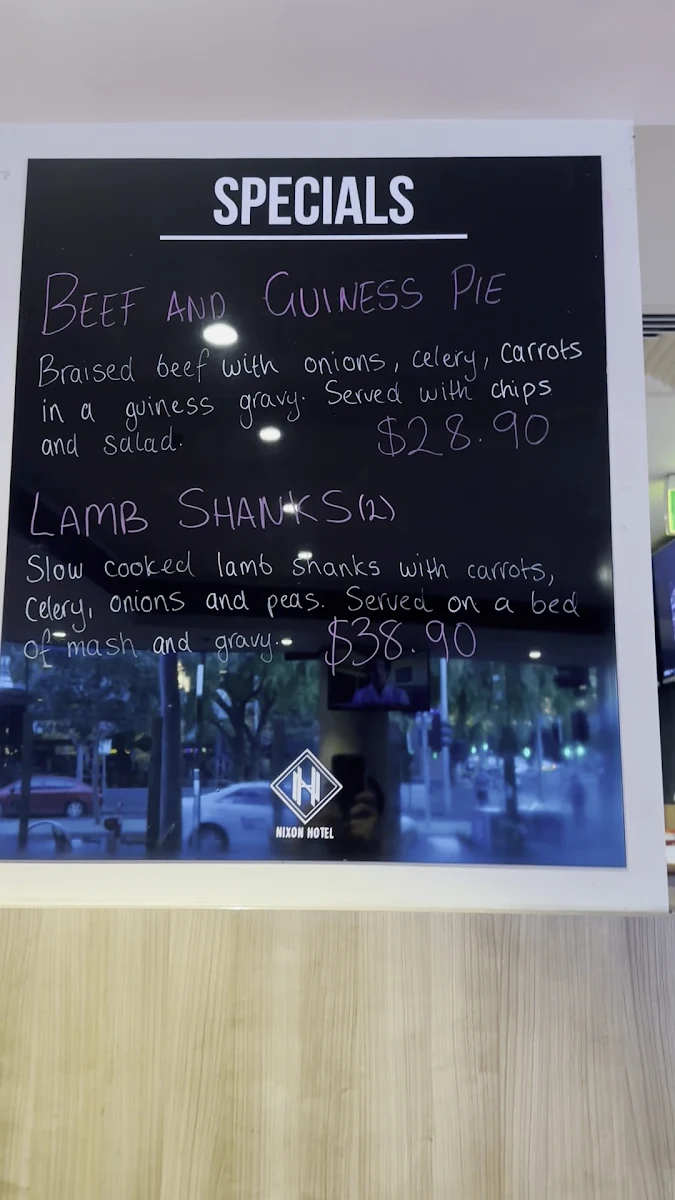 SPECIALS
BEEF AND GUINESS PIE
Braised beef with onions, celery, carrots
in a guiness gravy. Served with chips
and salad. $28.90
LAMB SHANKS (2)
Slow cooked lamb shanks with carrots,
Celery, onions and peas. Served on a bed
of mash and gravy. $38.90
H
NIXON HOTEL